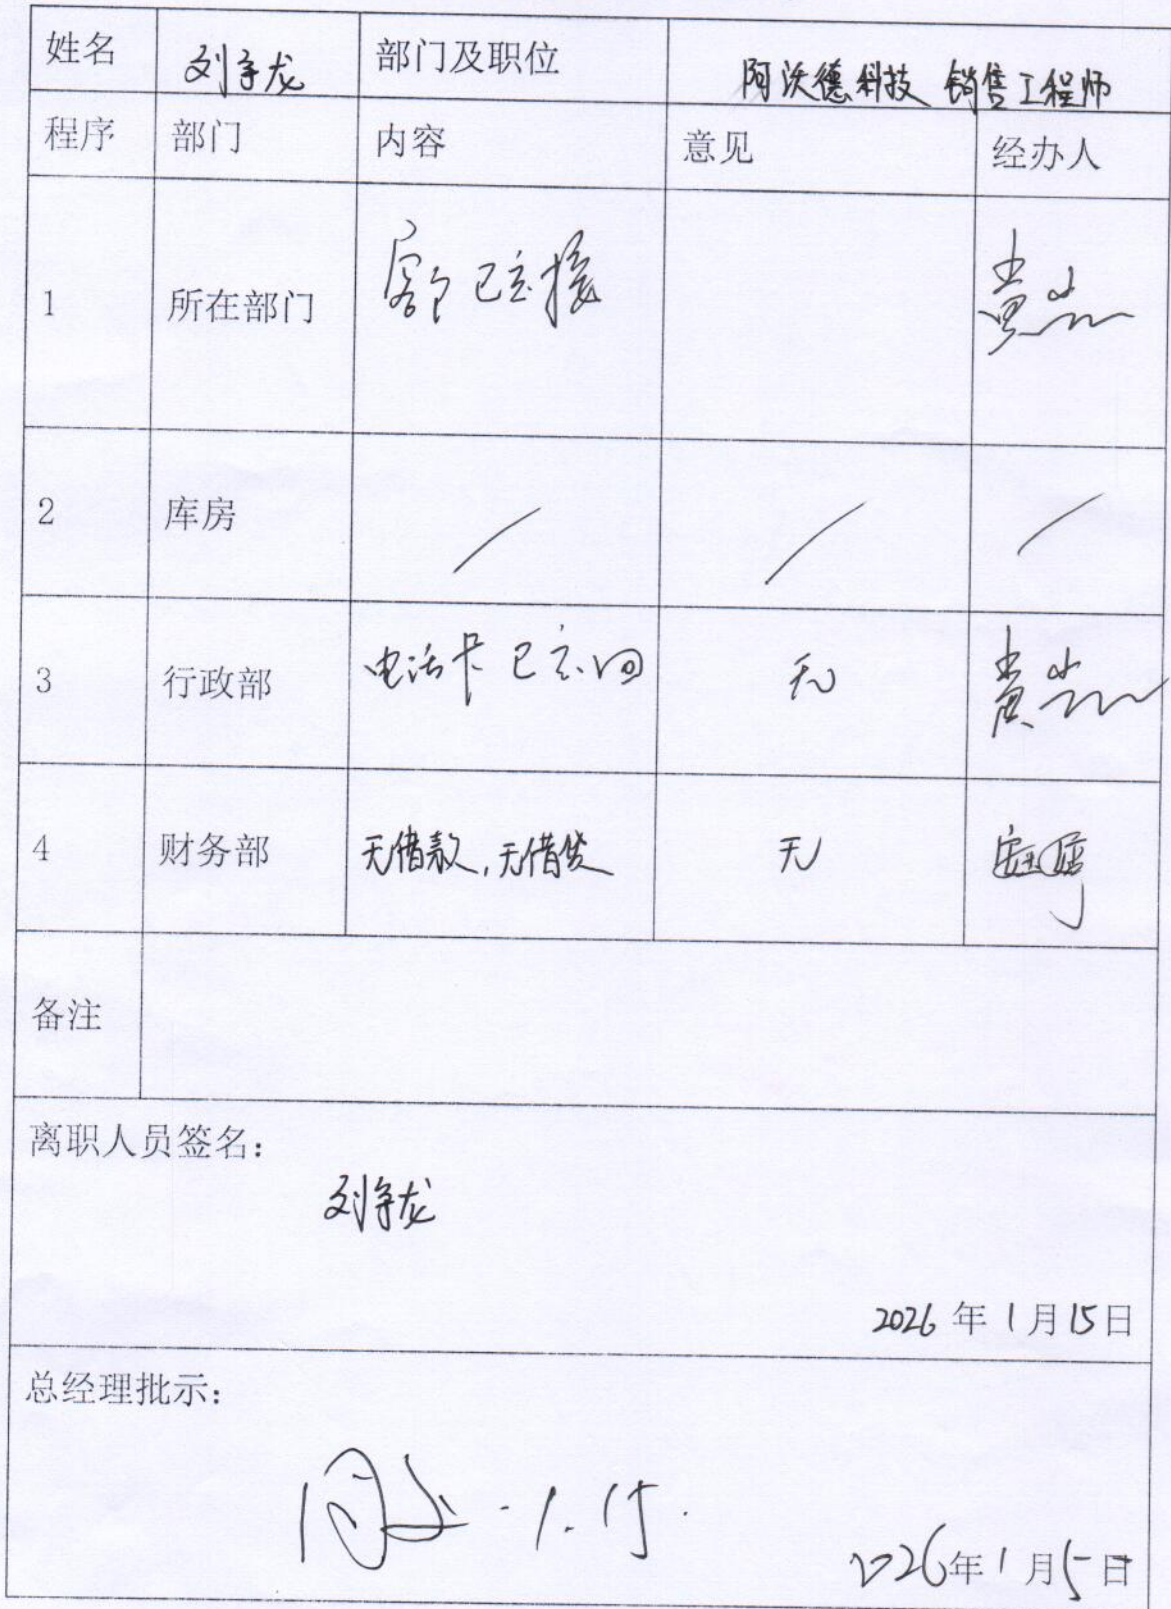 姓名 刘争龙 部门及职位 阿沃德科技 销售工程师
程序 部门 内容 意见 经办人
1 所在部门 已交接
2 库房 / / /
3 行政部 电话卡已交回 无
4 财务部 无借款，无借货 无
备注
离职人员签名：
刘争龙
2026年1月15日
总经理批示：
同意 . 1.15.
2026年1月5日